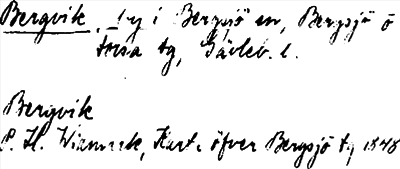 Bergvik, by i Bergsjö sn, Bergsjö o
Forsa tg, Gävleb. l.
Bergvik
P. H. Widmark, Karta öfver Bergsjö tg 1848